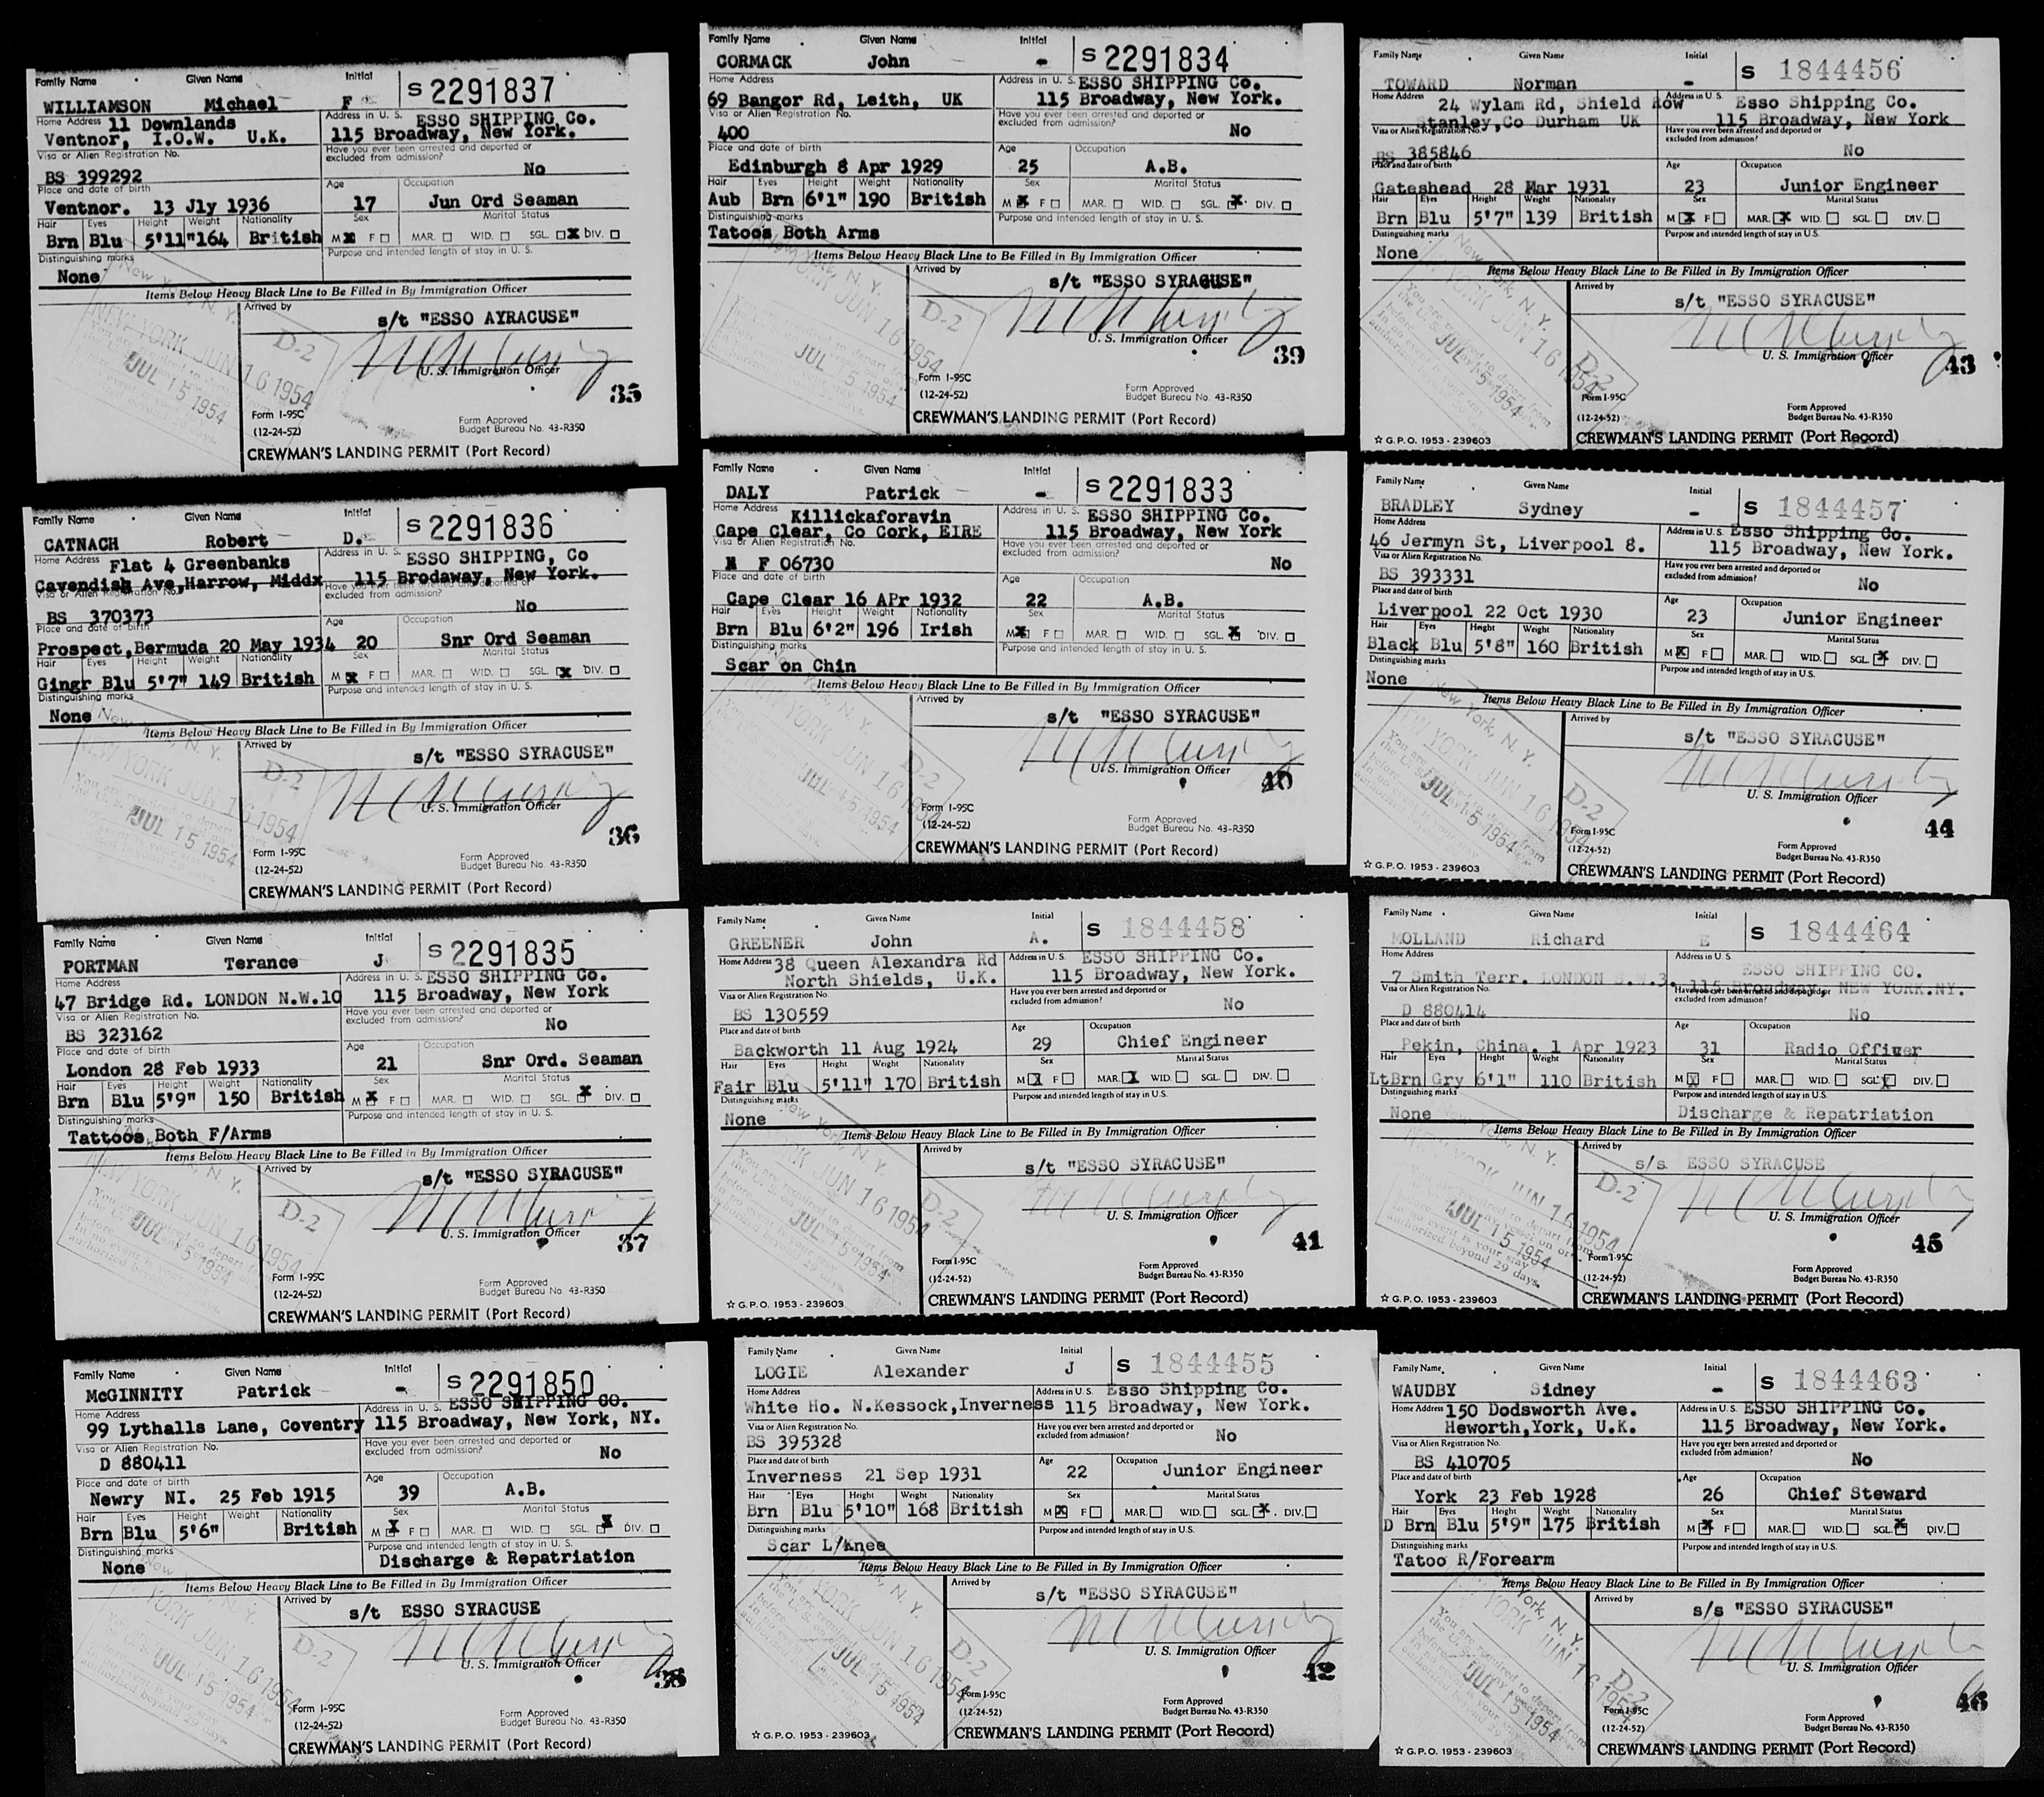 Family Name Given Name Initial S 2291837
WILLIAMSON Michael F
Home Address 11 Downlands Address in U. S. ESSO SHIPPING Co.
Ventnor, I.O.W. U.K. 115 Broadway, New York.
Visa or Alien Registration No. Have you ever been arrested and deported or excluded from admission?
BS 399292 No
Place and date of birth Age Occupation
Ventnor. 13 Jly 1936 17 Jun Ord Seaman
Hair Eyes Height Weight Nationality Sex Marital Status
Brn Blu 5'11" 164 British M X F MAR. WID. SGL. X DIV.
Distinguishing marks Purpose and intended length of stay in U. S.
None
Items Below Heavy Black Line to Be Filled in By Immigration Officer
Arrived by
s/t "ESSO AYRACUSE"
New York, N. Y.
NEW YORK JUN 16 1954
D-2
JUL 15 1954
U. S. Immigration Officer
35
Form I-95C
(12-24-52)
Form Approved
Budget Bureau No. 43-R350
CREWMAN'S LANDING PERMIT (Port Record)
Family Name Given Name Initial S 2291836
CATNACH Robert D.
Home Address Flat 4 Greenbanks Address in U. S. ESSO SHIPPING, Co
Cavendish Ave, Harrow, Middx 115 Brodaway, New York.
Visa or Alien Registration No. Have you ever been arrested and deported or excluded from admission?
BS 370373 No
Place and date of birth Age Occupation
Prospect, Bermuda 20 May 1934 20 Snr Ord Seaman
Hair Eyes Height Weight Nationality Sex Marital Status
Gingr Blu 5'7" 149 British M X F MAR. WID. SGL. X DIV.
Distinguishing marks Purpose and intended length of stay in U. S.
None
Items Below Heavy Black Line to Be Filled in By Immigration Officer
Arrived by
s/t "ESSO SYRACUSE"
New York, N. Y.
NEW YORK JUN 16 1954
D-2
JUL 15 1954
U. S. Immigration Officer
36
Form I-95C
(12-24-52)
Form Approved
Budget Bureau No. 43-R350
CREWMAN'S LANDING PERMIT (Port Record)
Family Name Given Name Initial S 2291835
PORTMAN Terance J
Home Address Address in U. S. ESSO SHIPPING Co.
47 Bridge Rd. LONDON N.W.10 115 Broadway, New York
Visa or Alien Registration No. Have you ever been arrested and deported or excluded from admission?
BS 323162 No
Place and date of birth Age Occupation
London 28 Feb 1933 21 Snr Ord. Seaman
Hair Eyes Height Weight Nationality Sex Marital Status
Brn Blu 5'9" 150 British M X F MAR. WID. SGL. X DIV.
Distinguishing marks Purpose and intended length of stay in U. S.
Tattoos Both F/Arms
Items Below Heavy Black Line to Be Filled in By Immigration Officer
Arrived by
s/t "ESSO SYRACUSE"
NEW YORK JUN 16 1954
D-2
JUL 15 1954
U. S. Immigration Officer
37
Form I-95C
(12-24-52)
Form Approved
Budget Bureau No. 43-R350
CREWMAN'S LANDING PERMIT (Port Record)
Family Name Given Name Initial S 2291850
McGINNITY Patrick -
Home Address Address in U. S. ESSO SHIPPING CO.
99 Lythalls Lane, Coventry 115 Broadway, New York, NY.
Visa or Alien Registration No. Have you ever been arrested and deported or excluded from admission?
D 880411 No
Place and date of birth Age Occupation
Newry NI. 25 Feb 1915 39 A.B.
Hair Eyes Height Weight Nationality Sex Marital Status
Brn Blu 5'6" British M X F MAR. WID. SGL. X DIV.
Distinguishing marks Purpose and intended length of stay in U. S.
None Discharge & Repatriation
Items Below Heavy Black Line to Be Filled in By Immigration Officer
Arrived by
s/t ESSO SYRACUSE
YORK JUN 16 1954
D-2
JUL 15 1954
U. S. Immigration Officer
38
Form I-95C
(12-24-52)
Form Approved
Budget Bureau No. 43-R350
CREWMAN'S LANDING PERMIT (Port Record)
Family Name Given Name Initial S 2291834
CORMACK John -
Home Address Address in U. S. ESSO SHIPPING Co.
69 Bangor Rd, Leith, UK 115 Broadway, New York.
Visa or Alien Registration No. Have you ever been arrested and deported or excluded from admission?
400 No
Place and date of birth Age Occupation
Edinburgh 8 Apr 1929 25 A.B.
Hair Eyes Height Weight Nationality Sex Marital Status
Aub Brn 6'1" 190 British M X F MAR. WID. SGL. X DIV.
Distinguishing marks Purpose and intended length of stay in U. S.
Tatoos Both Arms
Items Below Heavy Black Line to Be Filled in By Immigration Officer
Arrived by
s/t "ESSO SYRACUSE"
YORK JUN 16 1954
D-2
JUL 5 1954
U. S. Immigration Officer
39
Form I-95C
(12-24-52)
Form Approved
Budget Bureau No. 43-R350
CREWMAN'S LANDING PERMIT (Port Record)
Family Name Given Name Initial S 2291833
DALY Patrick -
Home Address Killickaforavin Address in U. S. ESSO SHIPPING Co.
Cape Clear, Co Cork, EIRE 115 Broadway, New York
Visa or Alien Registration No. Have you ever been arrested and deported or excluded from admission?
F 06730 No
Place and date of birth Age Occupation
Cape Clear 16 APr 1932 22 A.B.
Hair Eyes Height Weight Nationality Sex Marital Status
Brn Blu 6'2" 196 Irish M X F MAR. WID. SGL. X DIV.
Distinguishing marks Purpose and intended length of stay in U. S.
Scar on Chin
Items Below Heavy Black Line to Be Filled in By Immigration Officer
Arrived by
s/t "ESSO SYRACUSE"
YORK JUN 16 1954
D-2
JUL 15 1954
U. S. Immigration Officer
40
Form I-95C
(12-24-52)
Form Approved
Budget Bureau No. 43-R350
CREWMAN'S LANDING PERMIT (Port Record)
Family Name Given Name Initial S 1844458
GREENER John A.
Home Address 38 Queen Alexandra Rd Address in U. S. ESSO SHIPPING Co.
North Shields, U.K. 115 Broadway, New York.
Visa or Alien Registration No. Have you ever been arrested and deported or excluded from admission?
BS 130559 No
Place and date of birth Age Occupation
Backworth 11 Aug 1924 29 Chief Engineer
Hair Eyes Height Weight Nationality Sex Marital Status
Fair Blu 5'11" 170 British M X F MAR. X WID. SGL. DIV.
Distinguishing marks Purpose and intended length of stay in U. S.
None
Items Below Heavy Black Line to Be Filled in By Immigration Officer
Arrived by
s/t "ESSO SYRACUSE"
New York, N. Y.
YORK JUN 16 1954
D-2
JUL 15 1954
U. S. Immigration Officer
41
Form I-95C
(12-24-52)
Form Approved
Budget Bureau No. 43-R350
☆ G.P.O. 1953 - 239603 CREWMAN'S LANDING PERMIT (Port Record)
Family Name Given Name Initial S 1844455
LOGIE Alexander J
Home Address Address in U. S. Esso Shipping Co.
White Ho. N.Kessock, Inverness 115 Broadway, New York.
Visa or Alien Registration No. Have you ever been arrested and deported or excluded from admission?
BS 395328 No
Place and date of birth Age Occupation
Inverness 21 Sep 1931 22 Junior Engineer
Hair Eyes Height Weight Nationality Sex Marital Status
Brn Blu 5'10" 168 British M X F MAR. WID. SGL. X DIV.
Distinguishing marks Purpose and intended length of stay in U. S.
Scar L/Knee
Items Below Heavy Black Line to Be Filled in By Immigration Officer
Arrived by
s/t "ESSO SYRACUSE"
YORK JUN 16 1954
D-2
JUL 15 1954
U. S. Immigration Officer
42
Form I-95C
(12-24-52)
Form Approved
Budget Bureau No. 43-R350
☆ G.P.O. 1953 - 239603 CREWMAN'S LANDING PERMIT (Port Record)
Family Name Given Name Initial S 1844456
TOWARD Norman -
Home Address 24 Wylam Rd, Shield Row Address in U. S. Esso Shipping Co.
Stanley, Co Durham UK 115 Broadway, New York
Visa or Alien Registration No. Have you ever been arrested and deported or excluded from admission?
BS 385846 No
Place and date of birth Age Occupation
Gateshead 28 Mar 1931 23 Junior Engineer
Hair Eyes Height Weight Nationality Sex Marital Status
Brn Blu 5'7" 139 British M X F MAR. X WID. SGL. DIV.
Distinguishing marks Purpose and intended length of stay in U.S.
None
Items Below Heavy Black Line to Be Filled in By Immigration Officer
Arrived by
s/t "ESSO SYRACUSE"
New York, N. Y.
YORK JUN 16 1954
D-2
JUL 15 1954
U. S. Immigration Officer
43
Form I-95C
(12-24-52)
Form Approved
Budget Bureau No. 43-R350
☆ G.P.O. 1953 - 239603 CREWMAN'S LANDING PERMIT (Port Record)
Family Name Given Name Initial S 1844457
BRADLEY Sydney -
Home Address Address in U. S. Esso Shipping Co.
46 Jermyn St, Liverpool 8. 115 Broadway, New York.
Visa or Alien Registration No. Have you ever been arrested and deported or excluded from admission?
BS 393331 No
Place and date of birth Age Occupation
Liverpool 22 Oct 1930 23 Junior Engineer
Hair Eyes Height Weight Nationality Sex Marital Status
Black Blu 5'8" 160 British M X F MAR. WID. SGL. X DIV.
Distinguishing marks Purpose and intended length of stay in U.S.
None
Items Below Heavy Black Line to Be Filled in By Immigration Officer
Arrived by
s/t "ESSO SYRACUSE"
New York, N. Y.
NEW YORK JUN 16 1954
D-2
JUL 15 1954
U. S. Immigration Officer
44
Form I-95C
(12-24-52)
Form Approved
Budget Bureau No. 43-R350
☆ G.P.O. 1953 - 239603 CREWMAN'S LANDING PERMIT (Port Record)
Family Name Given Name Initial S 1844464
MOLLAND Richard E
Home Address Address in U. S. ESSO SHIPPING CO.
7 Smith Terr. LONDON S.W.3. 115 Broadway, NEW YORK.NY.
Visa or Alien Registration No. Have you ever been arrested and deported or excluded from admission?
D 880414 No
Place and date of birth Age Occupation
Pekin, China. 1 Apr 1923 31 Radio Officer
Hair Eyes Height Weight Nationality Sex Marital Status
LtBrn Gry 6'1" 110 British M X F MAR. WID. SGL. X DIV.
Distinguishing marks Purpose and intended length of stay in U. S.
None Discharge & Repatriation
Items Below Heavy Black Line to Be Filled in By Immigration Officer
Arrived by
s/s ESSO SYRACUSE
YORK JUN 16 1954
D-2
JUL 15 1954
In no event is your stay
authorized beyond 29 days.
U. S. Immigration Officer
45
Form I-95C
(12-24-52)
Form Approved
Budget Bureau No. 43-R350
☆ G.P.O. 1953 - 239603 CREWMAN'S LANDING PERMIT (Port Record)
Family Name Given Name Initial S 1844463
WAUDBY Sidney -
Home Address 150 Dodsworth Ave. Address in U. S. ESSO SHIPPING Co.
Heworth, York, U.K. 115 Broadway, New York.
Visa or Alien Registration No. Have you ever been arrested and deported or excluded from admission?
BS 410705 No
Place and date of birth Age Occupation
York 23 Feb 1928 26 Chief Steward
Hair Eyes Height Weight Nationality Sex Marital Status
D Brn Blu 5'9" 175 British M X F MAR. WID. SGL. X DIV.
Distinguishing marks Purpose and intended length of stay in U.S.
Tatoo R/Forearm
Items Below Heavy Black Line to Be Filled in By Immigration Officer
Arrived by
s/s "ESSO SYRACUSE"
York, N. Y.
YORK JUN 16 1954
D-2
JUL 15 1954
U. S. Immigration Officer
46
Form I-95C
(12-24-52)
Form Approved
Budget Bureau No. 43-R350
☆ G.P.O. 1953 - 239603 CREWMAN'S LANDING PERMIT (Port Record)